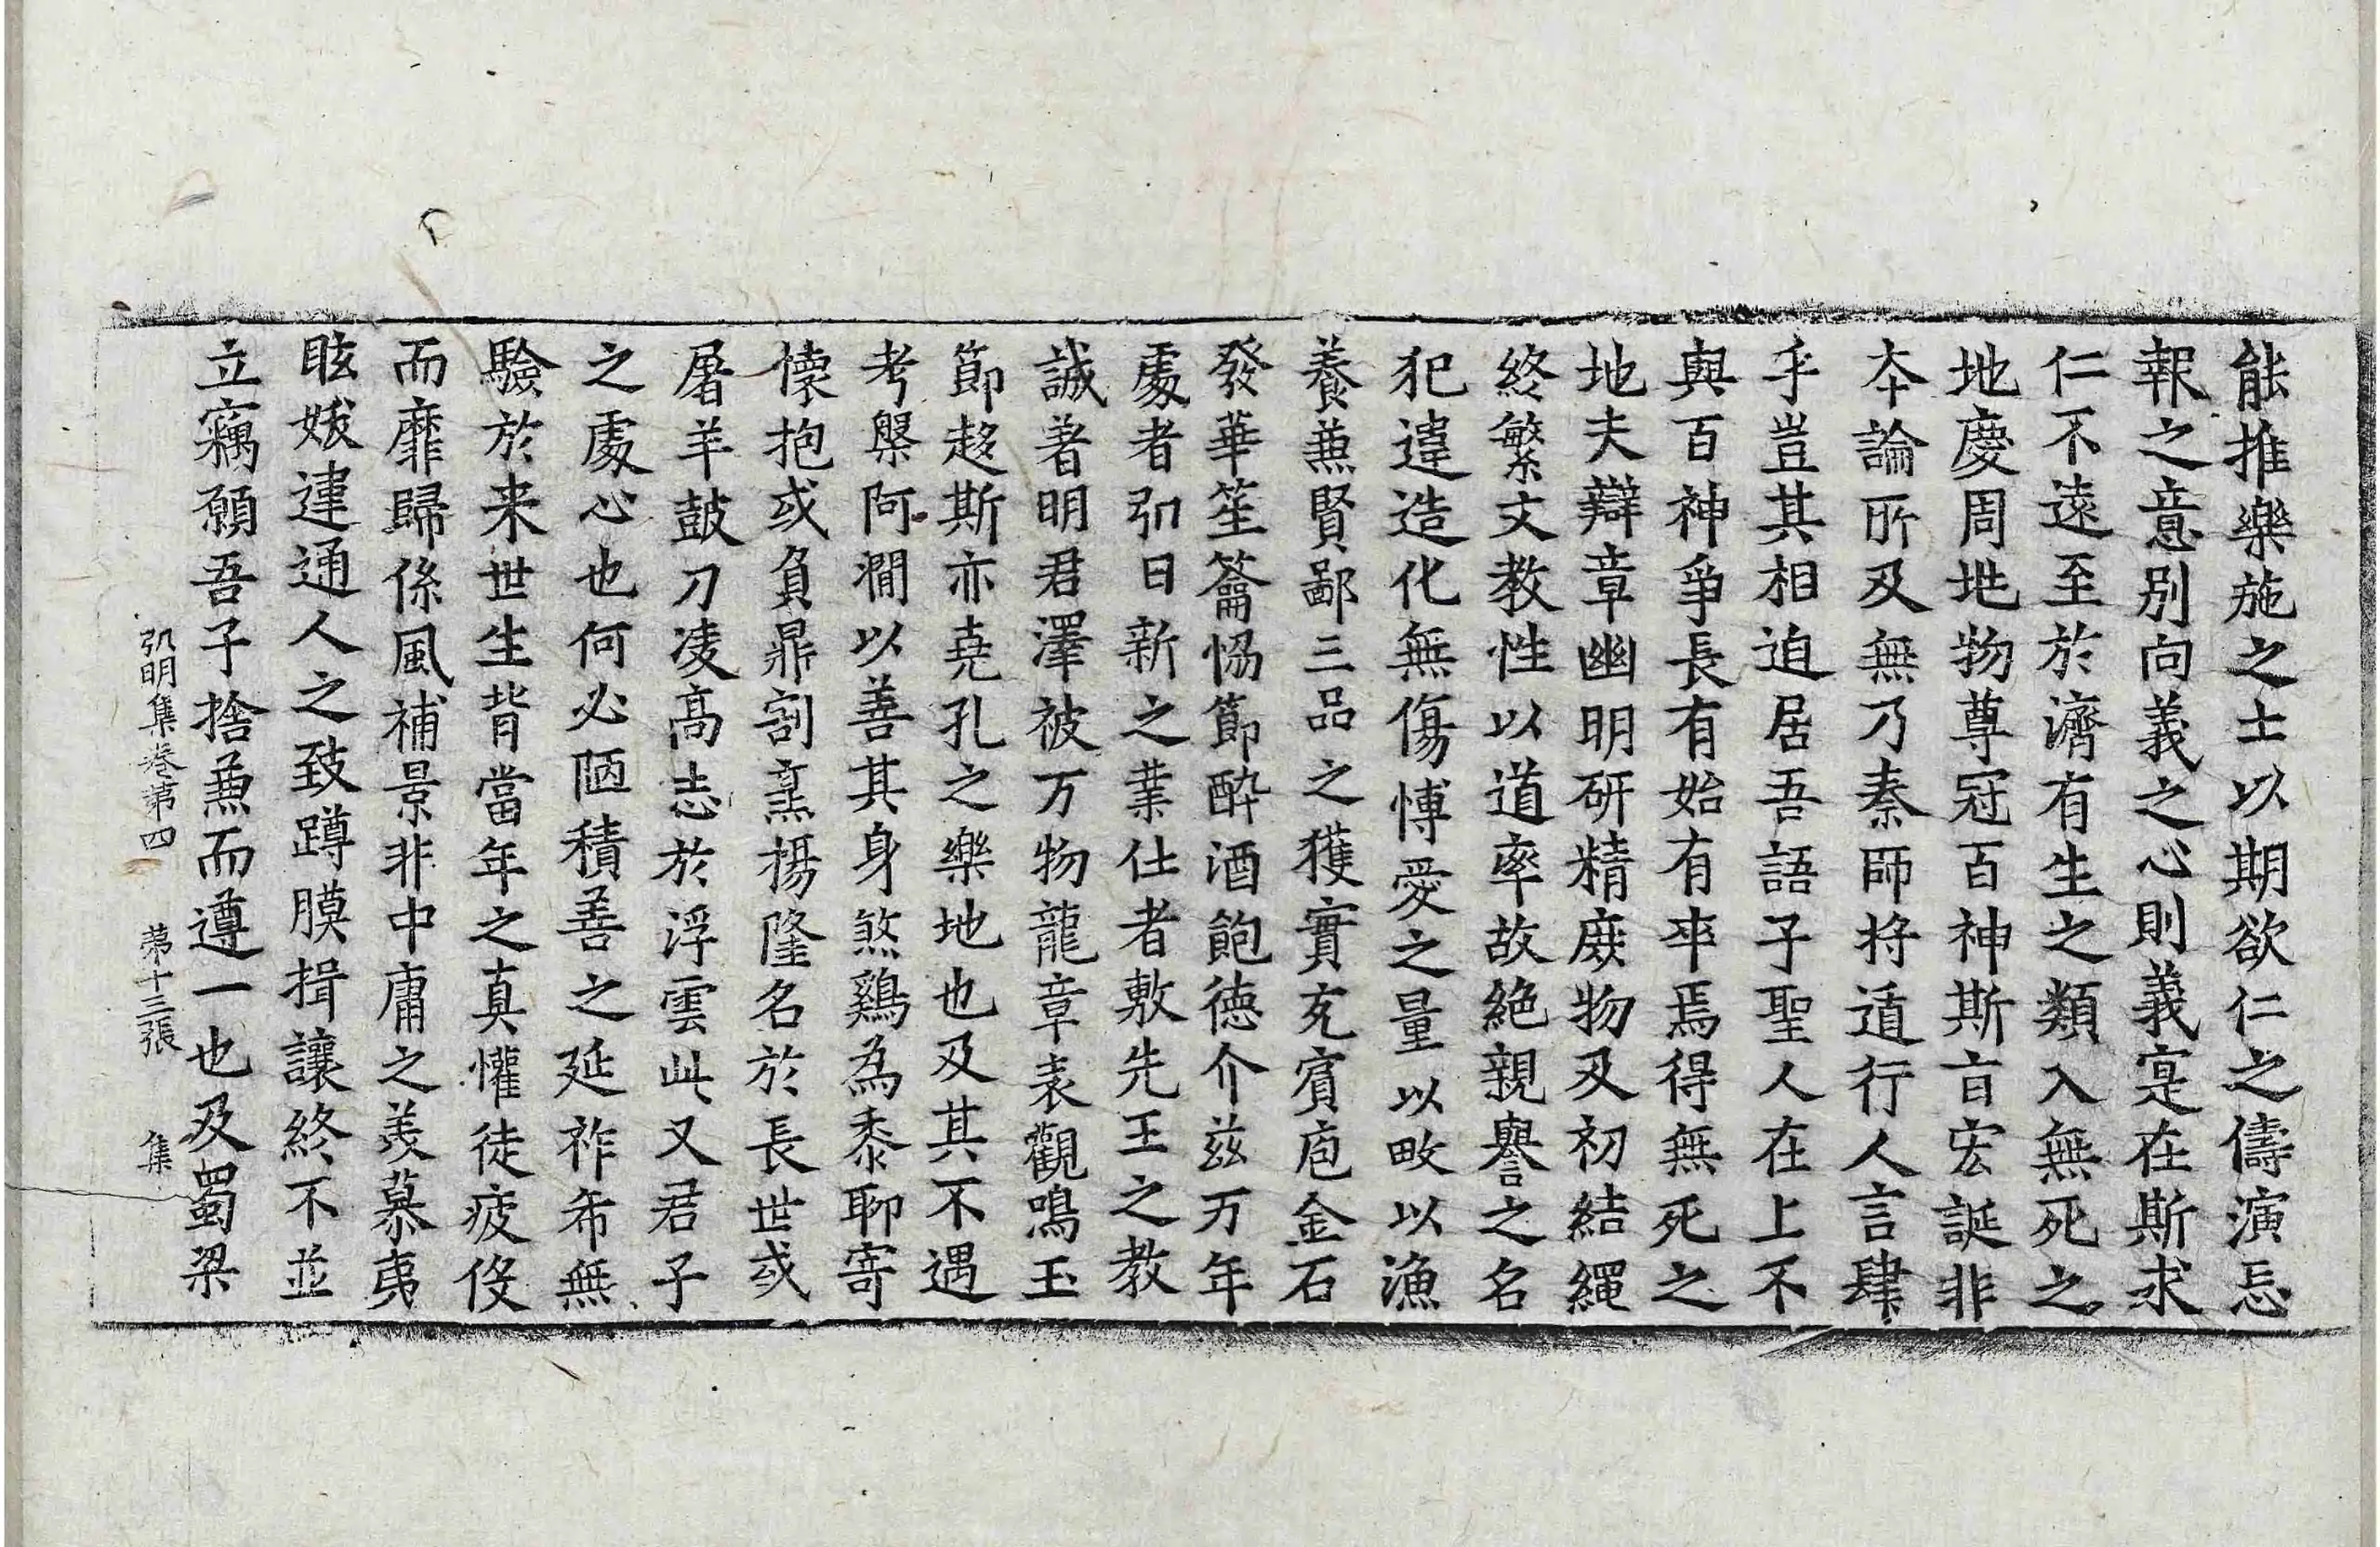 能推樂施之士以期欲仁之儔演忘
報之意別向義之心則義寔在斯求
仁不遠至於濟有生之類入無死之
地慶周地物尊冠百神斯旨宏誕非
本論所及無乃秦師將遁行人言肆
乎豈其相迫居吾語子聖人在上不
與百神爭長有始有卒焉得無死之
地夫辯章幽明研精庶物及初結繩
終繁文教性以道率故絕親譽之名
犯違造化無傷博愛之量以畋以漁
養兼賢鄙三品之獲實充賓庖金石
發華笙籥恊節醉酒飽德介兹万年
處者弘日新之業仕者敷先王之教
誠著明君澤被万物龍章表觀鳴玉
節趍斯亦堯孔之樂地也及其不遇
考槃阿澗以善其身煞鷄為黍聊寄
懷抱或負鼎割烹揚隆名於長世或
屠羊鼓刀凌高志於浮雲此又君子
之處心也何必陋積善之延祚希無
驗於来世生背當年之真懽徒疲役
而靡歸係風補景非中庸之羙慕夷
眩妭違通人之致蹲膜揖讓終不並
立竊願吾子捨兼而遵一也及蜀梁
弘明集卷第四 第十三張 集